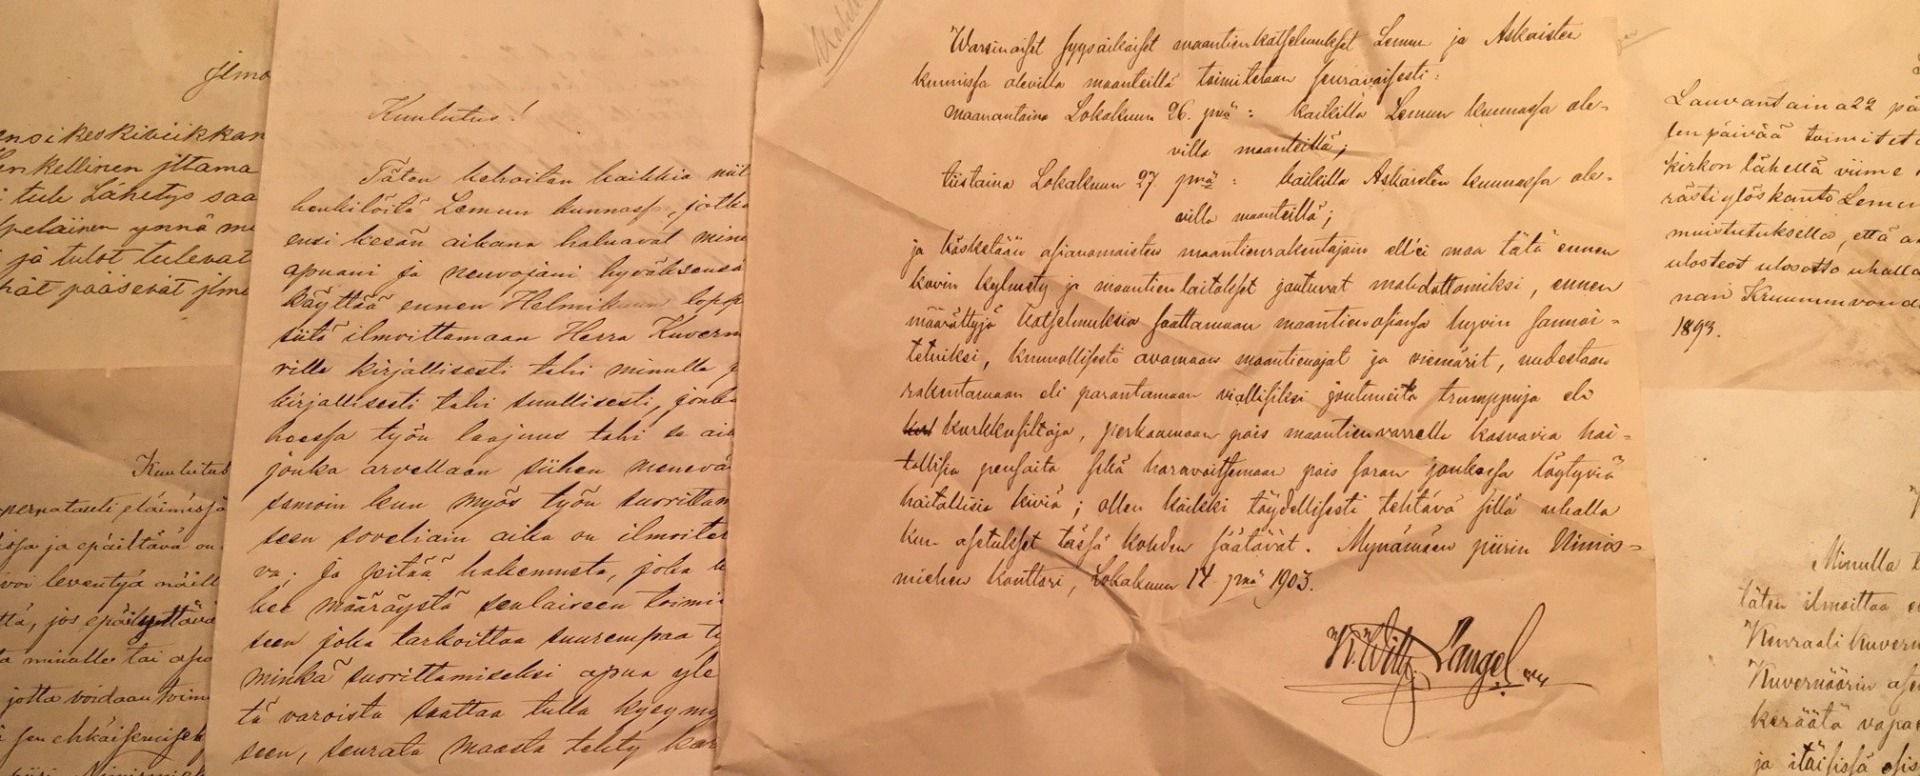 Ilmo
ensi keskiviikkan
kellinen iltama
tule Lähetys saa
ynnä
ja tulot tulevat
pääsevät
Kuulutus
issa ja epäiltävä on
voi leventyä näill
tä, jos epäilyttävä
minulle tai
jotta voidaan toim
Kuulutus!
Täten kehoitan kaikkia niit
henkilöitä Lemun kunnass, jotka
ensi kesän aikana haluavat minu
apuani ja neuvojani hyväksensä
käyttää ennen Helmikuun lopp
siitä ilmoittamaan Herra Kuvern
rille kirjallisesti tahi minulle
kirjallisesti tahi suullisesti, jonka
hoessa työn laajuus tahi se aik
jonka arvellaan siihen menevä
samoin kun myös työn suorittam
seen soveliain aika on ilmoitet
va; ja pitää hakemusta, joka
kee määräystä senlaiseen toimi
seen joka tarkoittaa suurempaa ty
minkä suorittamiseksi apua yle
tä varoista saattaa tulla kysymy
seen, seurata maasta tehty kar
Warsinaiset syysaikaiset maantienkatselmukset Lemun ja Askaisten
kunnissa olevilla maanteillä toimitetaan seuravaisesti:
maanantaina Lokakuun 26. pnä: kaikilla Lemun kunnassa ole-
villa maanteillä;
tiistaina Lokakuun 27 pnä: kaikilla Askaisten kunnassa ole-
villa maanteillä;
ja käsketään asianomaisten maantienrakentajain ellei maa tätä ennen
kovin kylmety ja maantien laitokset jautuvat mahdottomiksi, ennen
määrättyjä katselmuksia saattamaan maantienosansa hyvin sannoi-
tetuiksi, kunnollisesti avamaan maantienojat ja viemärit, uudestaan
rakentamaan eli parantamaan viallisiksi joutuneita trumppuja eli
kurkkusiltoja, perkaamaan pois maantienvarrella kasvavia hai-
tallisia pensaita sekä haravoitsemaan pois soran joukossa löytyviä
haitallisia kiviä; ollen kaikki täydellisesti tehtävä sillä uhalla
kun asetukset tässä kohden säätävät. Mynämäen piirin Nimis-
miehen konttori, Lokakuun 14 pnä 1903.
K. Wilh. Langel
Lauvantaina 22 pä
len päivää toimitet
kirkon lähellä viime
rästi ylöskanto Lemu
muistutuksella, että
ulosteot ulosotto uhalla
nan Kruununvoud
1893.
Minulla
täten ilmoittaa
Kenraalikuvern
Kuvernöörin
kerätä vapae
ja itäisissä